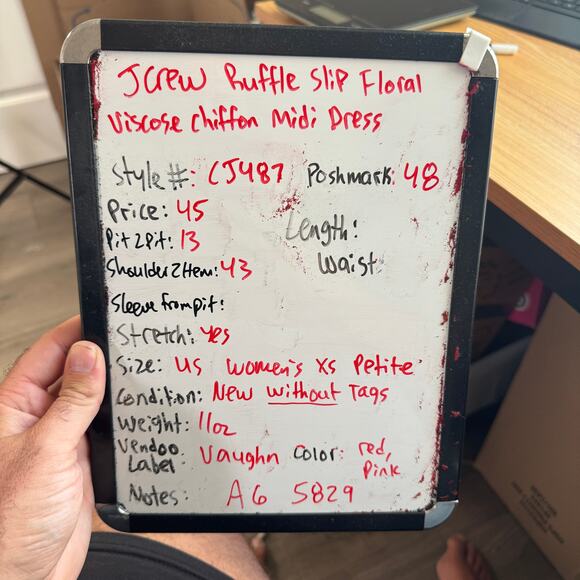 JCrew Ruffle Slip Floral
Viscose Chiffon Midi Dress
Style #: CJ487 Poshmark: 48
Price: 45
Pit 2 Pit: 13 Length:
Shoulder 2 Hem: 43 Waist:
Sleeve from pit:
Stretch: yes
Size: US Women's XS Petite
Condition: New without Tags
Weight: 11oz
Vendoo Label: Vaughn Color: red, Pink
Notes: A6 5829